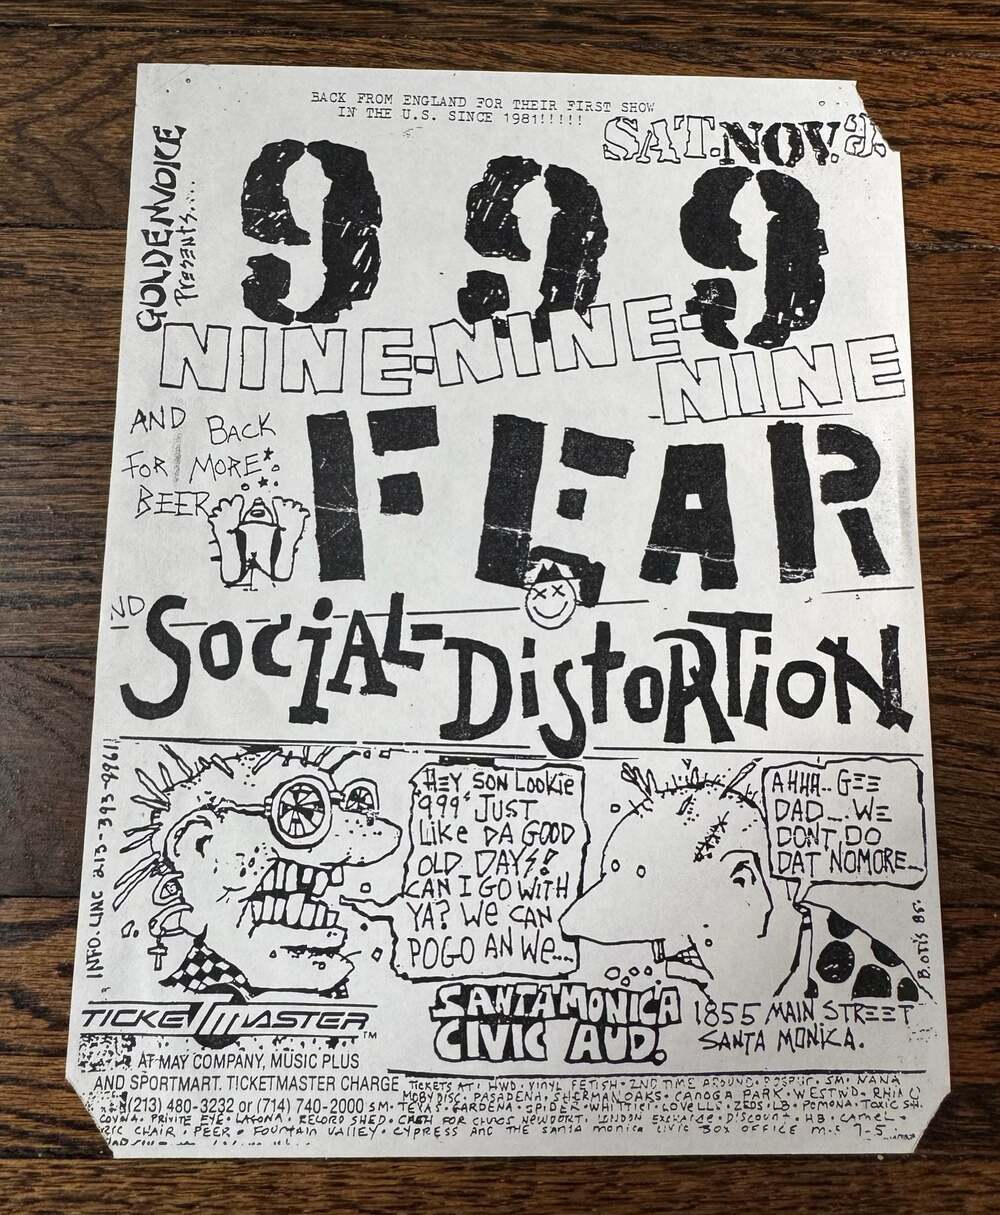 BACK FROM ENGLAND FOR THEIR FIRST SHOW
IN THE U.S. SINCE 1981!!!!!
SAT. NOV. 9.
GOLDENVOICE
Presents....
999
NINE-NINE-
NINE
AND BACK
FOR MORE
BEER
FEAR
ND
SOCIAL-DISTORTION
INFO. LINE 213-393-9961
HEY SON LOOKIE
'999' JUST
LIKE DA GOOD
OLD DAYS!
CAN I GO WITH
YA? WE CAN
POGO AN WE....
AHHH.. GEE
DAD... WE
DONT DO
DAT NOMORE...
B.OTIS 85.
TICKETMASTER TM
AT MAY COMPANY, MUSIC PLUS
AND SPORTMART. TICKETMASTER CHARGE
(213) 480-3232 or (714) 740-2000
SANTA MONICA
CIVIC AUD.
1855 MAIN STREET
SANTA MONICA.
TICKETS AT: HWD. VINYL FETISH. 2ND TIME AROUND. SM. NANA
MOBY DISC. PASADENA. SHERMAN OAKS. CANOGA PARK. WESTWD. RHINO
SM. TEXAS. GARDENA. SPIDER. WHITTIER. LOVELLS. ZEDS. LB. POMONA. TOXIC SH.
COVNA. PRIVITE EYE. LAGONA. RECORD SHED. CRASH FOR CHAOS NEWPORT. UNION EXCHANGE DISCOUNT. HB. CAMEL.
CHAIR. PEER. FOUNTAIN VALLEY. CYPRESS AND THE SANTA MONICA CIVIC BOX OFFICE